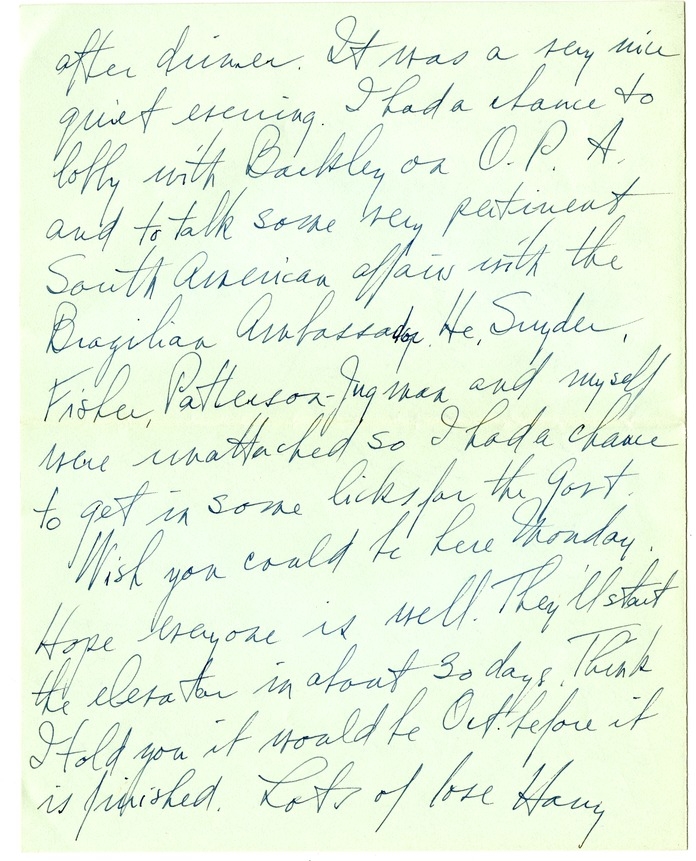 after dinner. It was a very nice
quiet evening. I had a chance to
lobby with Barkley on O. P. A.
and to talk some very pertinent
South American affairs with the
Brazilian Ambassador. He, Snyder,
Fisher, Patterson-Jugman and myself
were unattached so I had a chance
to get in some licks for the Govt.
Wish you could be here Monday.
Hope everyone is well. They'll start
the elevator in about 30 days. Think
I told you it would be Oct. before it
is finished. Lots of love Harry